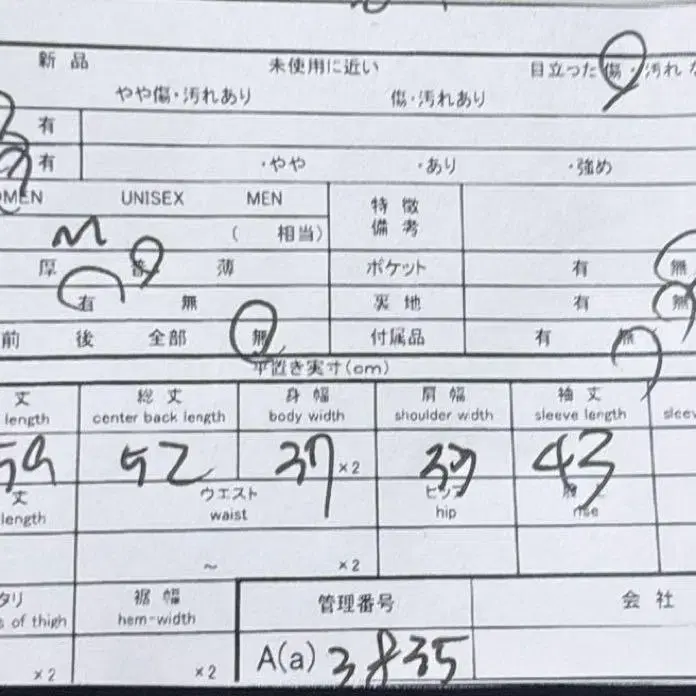 新品 未使用に近い 目立った傷・汚れな
やや傷・汚れあり 傷・汚れあり
有
有 ・やや ・あり ・強め
OMEN UNISEX MEN 特徴
備考
M ( 相当)
厚 普 薄 ポケット 有 無
有 無 裏地 有 無
前 後 全部 無 付属品 有 無
平置き実寸(cm)
丈 総丈 身幅 肩幅 袖丈
length center back length body width shoulder wdth sleeve length sleev
59 52 37 ×2 43
丈 ウエスト ヒップ
length waist hip rise
~ ×2
タリ 裾幅 管理番号 会社
s of thigh hem-width
×2 ×2 A(a) 3835